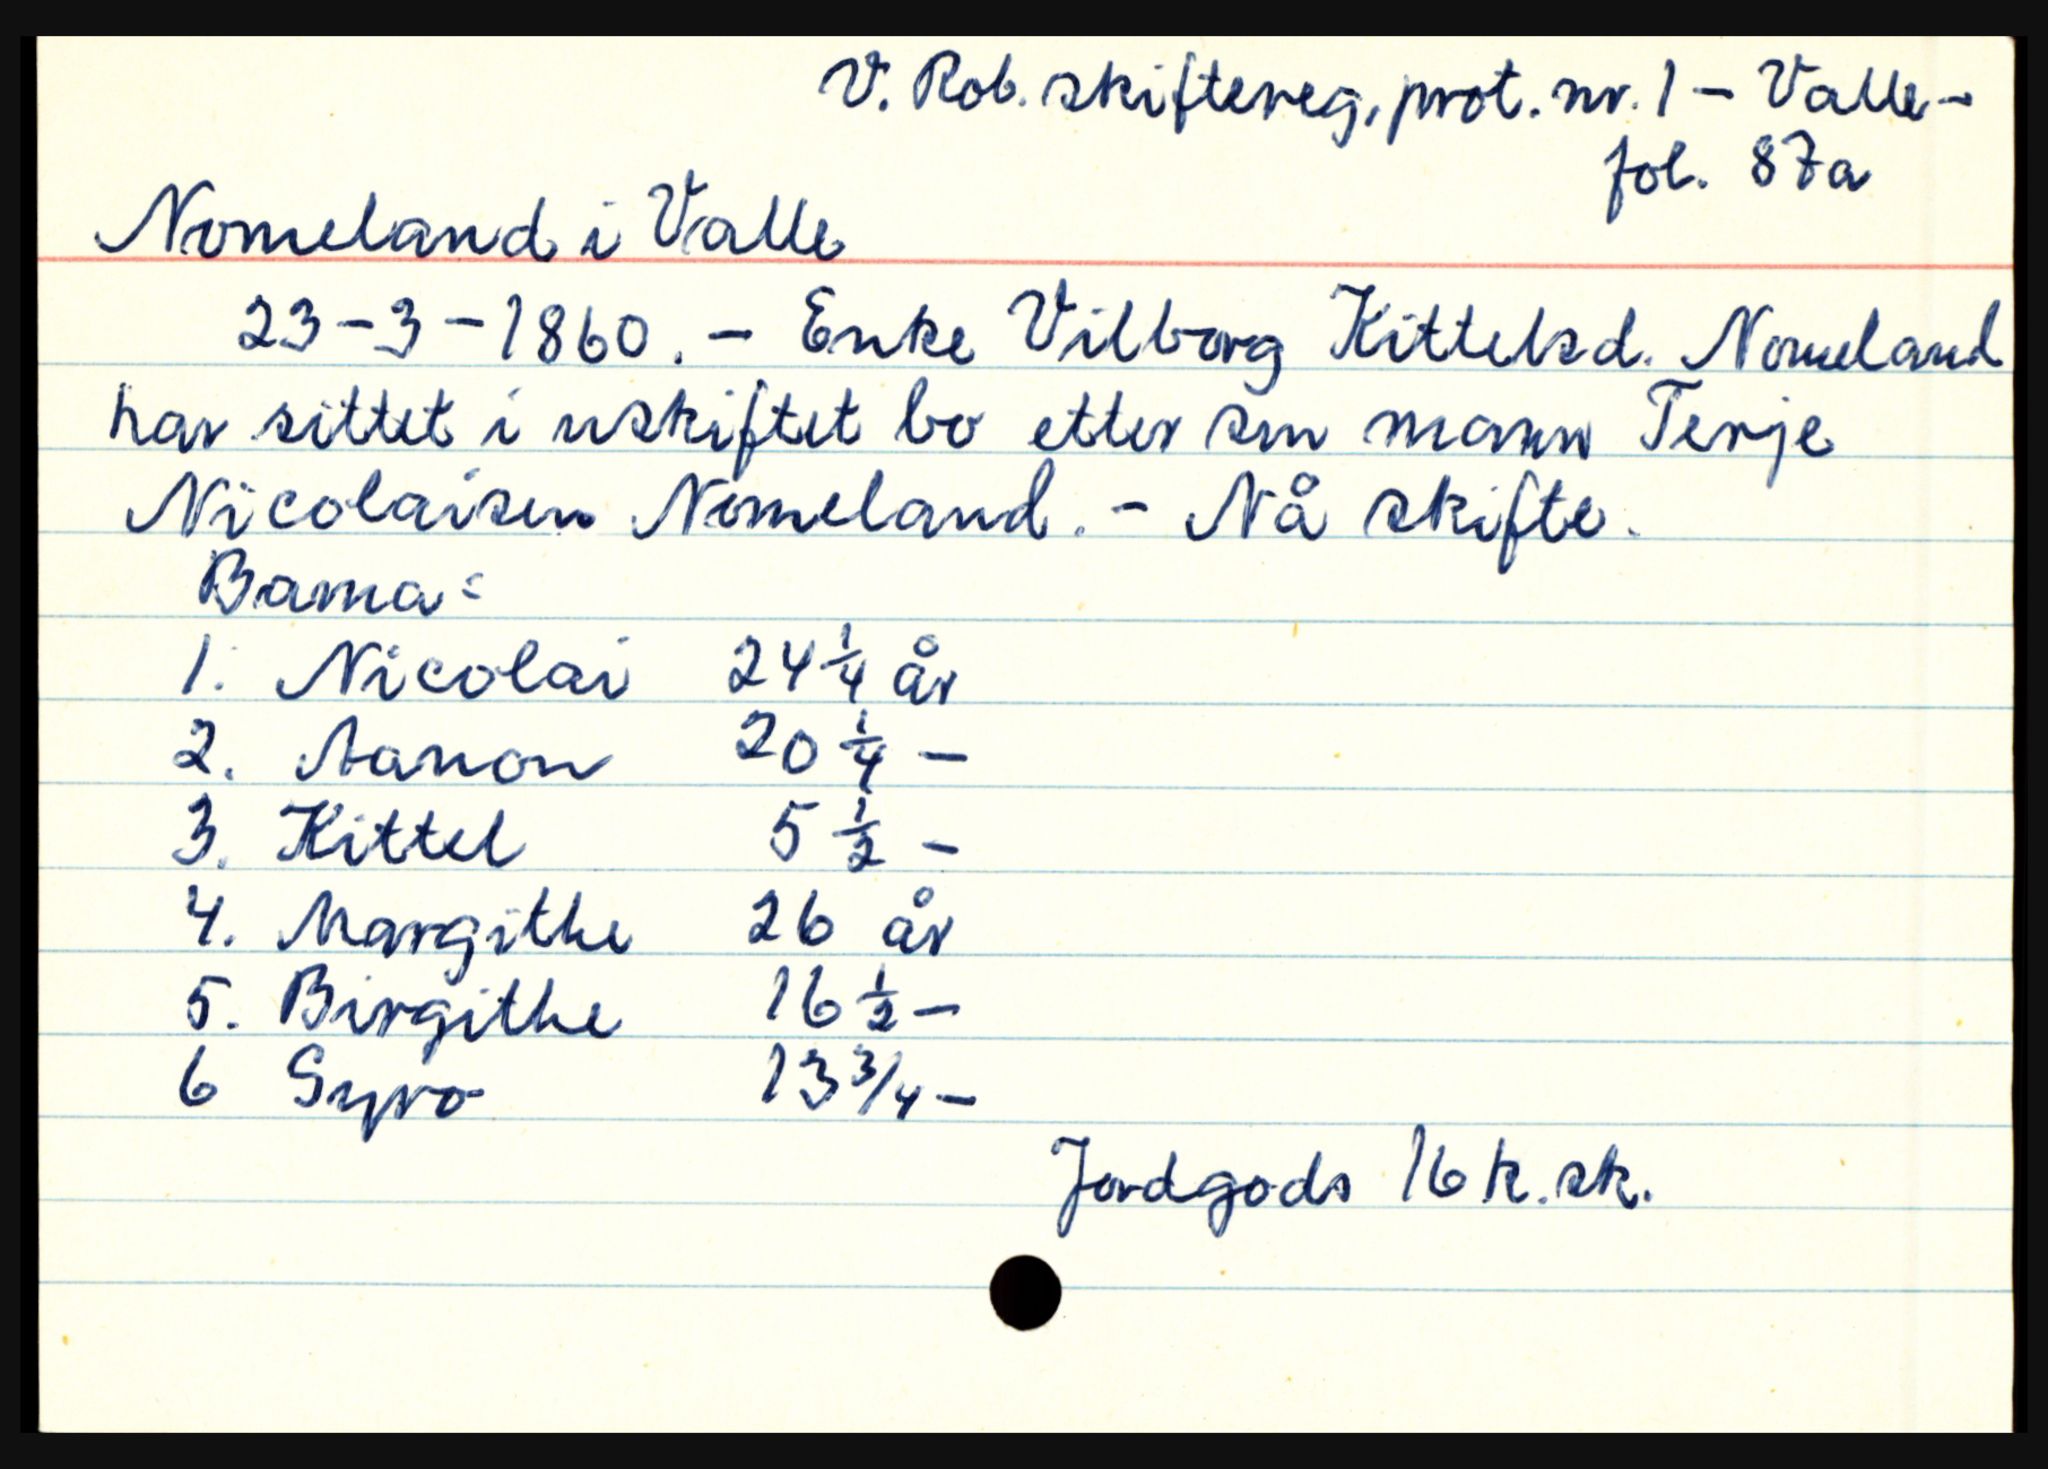 V. Rob. skiftereg, prot. nr. 1 - Valle -
fol. 87a
Nomeland i Valle
23-3-1860. - Enke Vilborg Kittelsd. Nomeland
har sittet i uskiftet bo etter sin mann Terje
Nicolaisen Nomeland. - Nå skifte.
Barna:
1. Nicolai 24 1/4 år
2. Aanon 20 1/4 -
3. Kittel 5 1/2 -
4. Margithe 26 år
5. Birgithe 16 1/2 -
6 Gyro 13 3/4 -
Jordgods 16 k. sk.